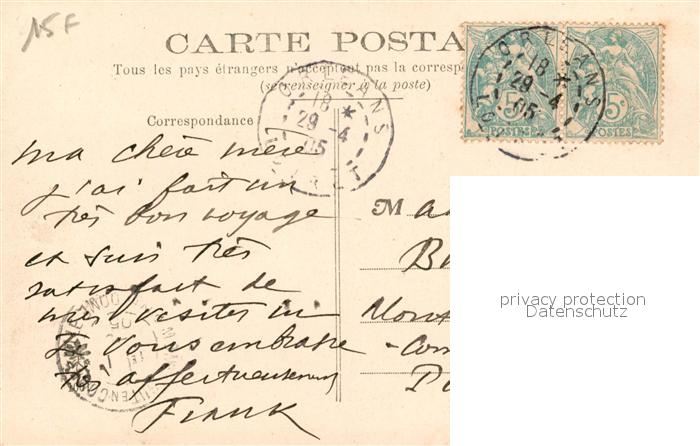 15 F
CARTE POSTA
Tous les pays étrangers n'acceptent pas la correspo
(se renseigner à la poste)
Correspondance
ORLEANS
18
29 -4
05
LOIRET
ORLEANS
18
29 -4
05
5c
POSTES
5c
POSTES
ma chère mère
j'ai fait un
très bon voyage
et suis très
satisfait de
mes visites
vous embrasse
très affectueusement
Frank
M
privacy protection
Datenschutz